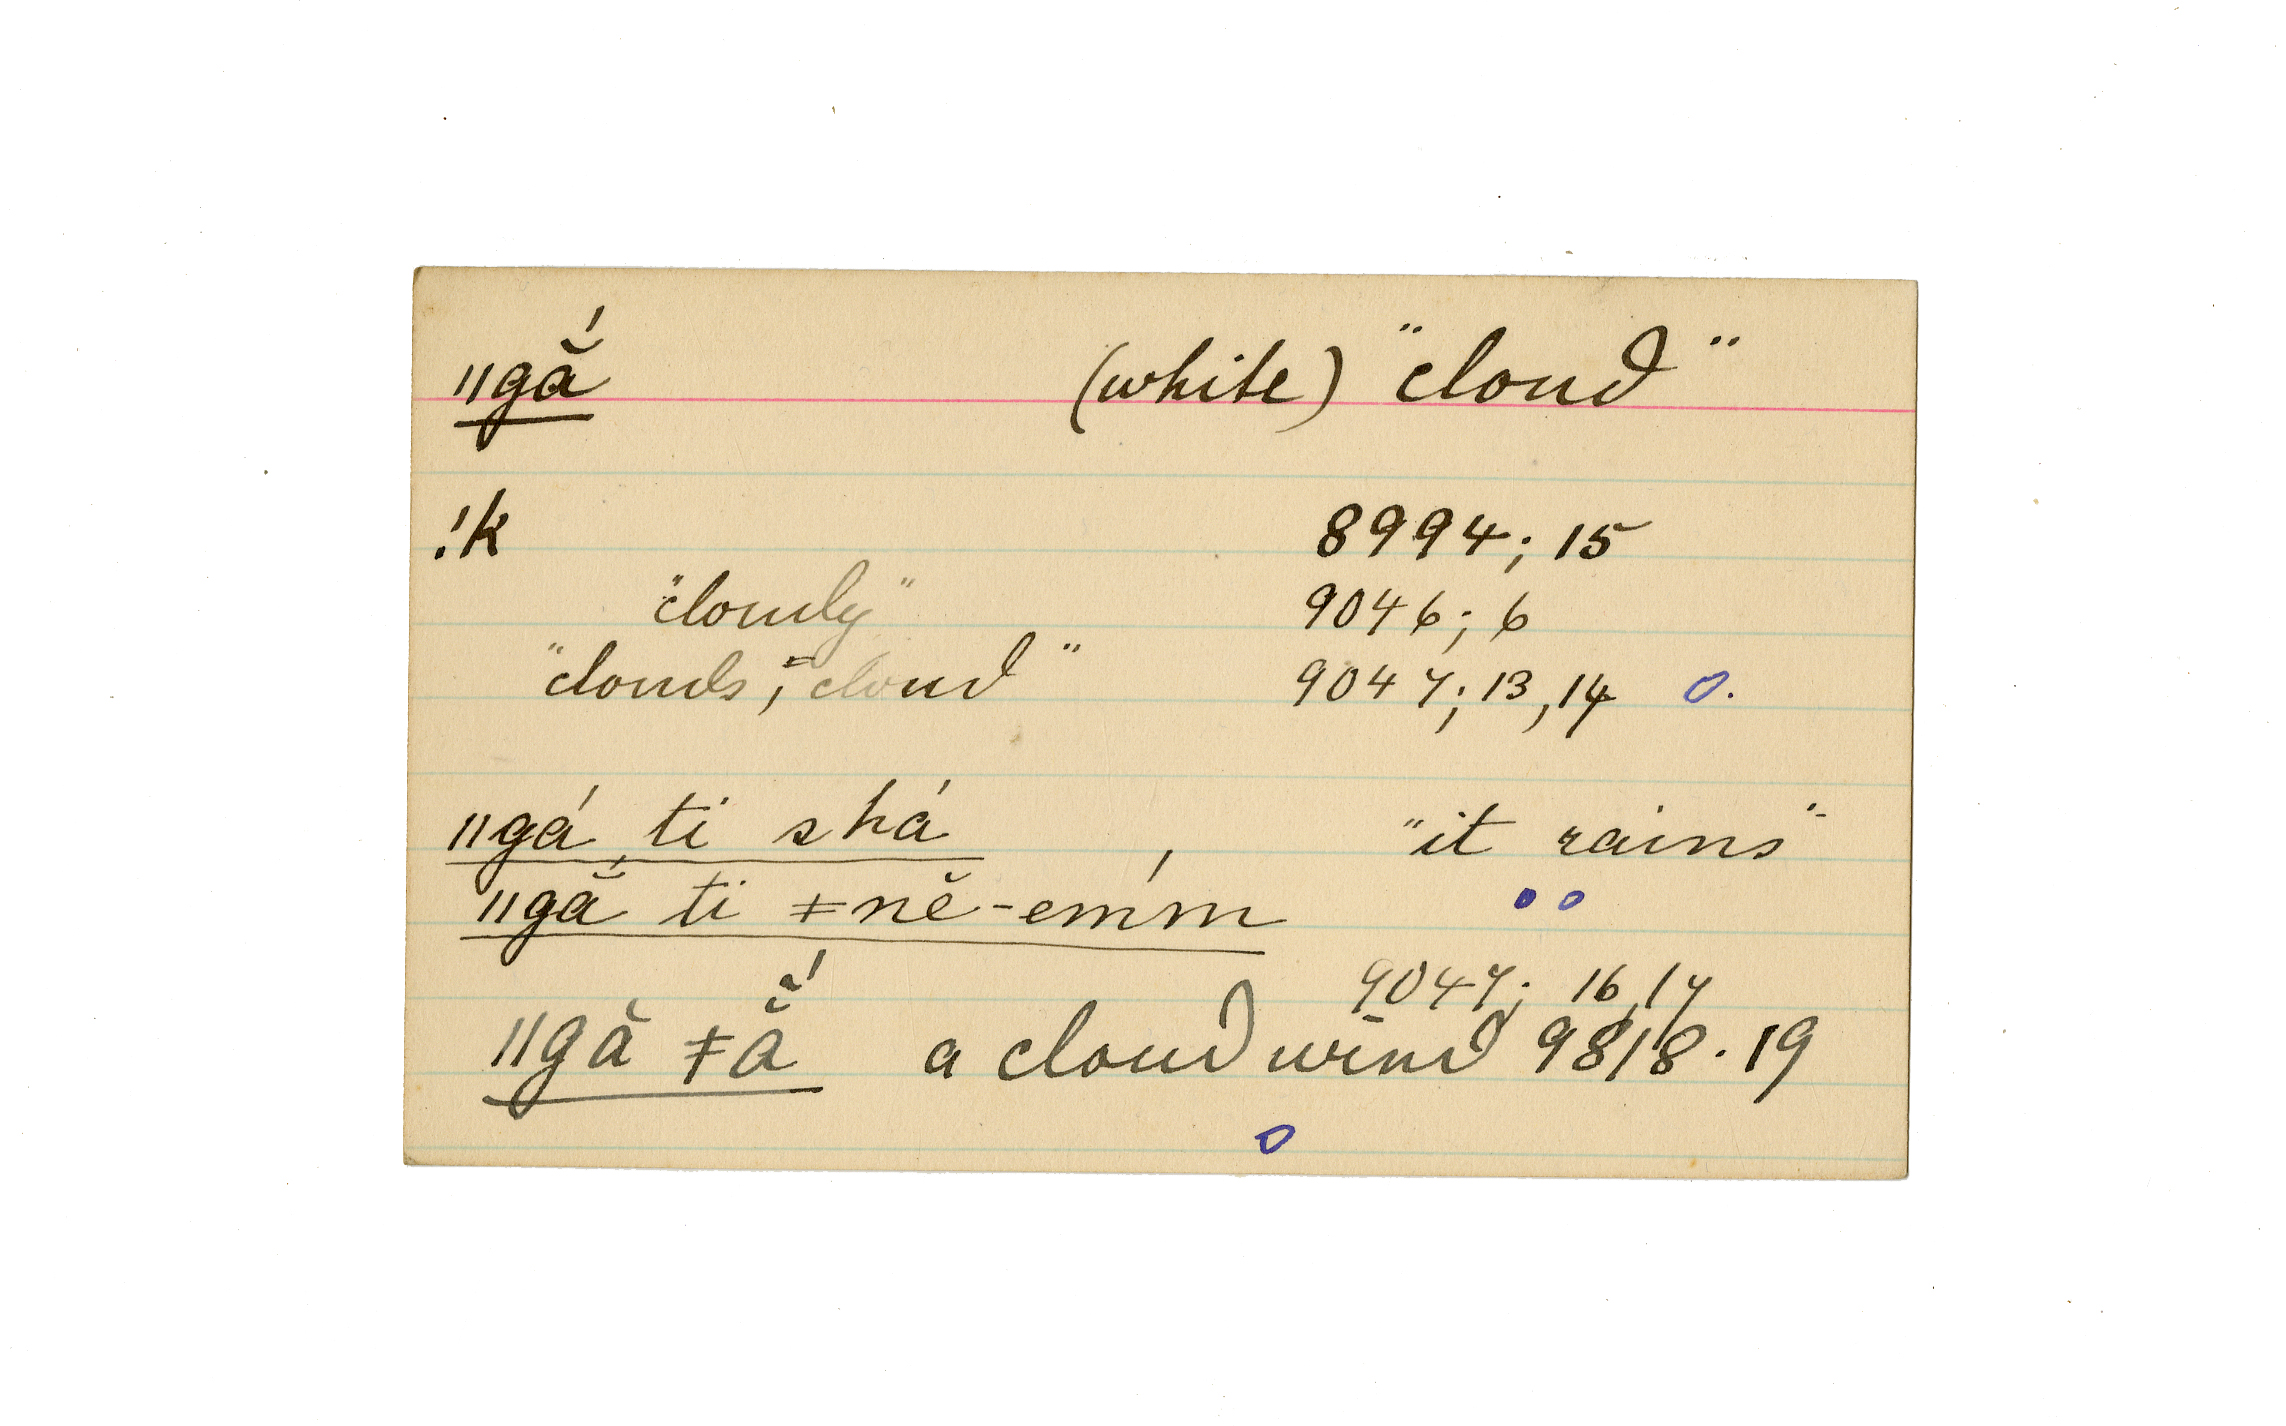 ǁgắ (white) "cloud"
!k 8994; 15
"cloudy" 9046; 6
"clouds," "cloud" 9047; 13, 14 o.
ǁgá ti shá "it rains"
ǁgắ ti ǂnĕ-emḿ
9047; 16, 17
ǁgă ǂẵ́ a cloud wind 9818. 19